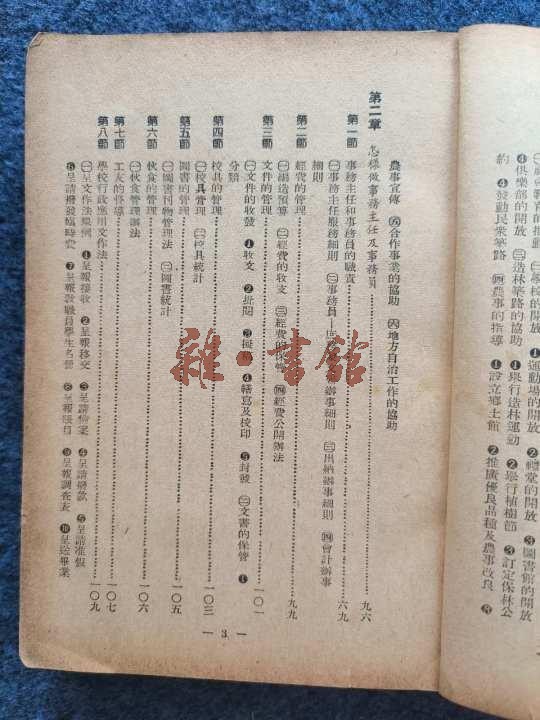 農育教育的推動 ㊁學校的開放 ❶運動場的開放 ❷禮堂的開放 ❸圖書館的開放
❹俱樂部的開放 ㊂造林築路的協助 ❶舉行造林運動 ❷舉行植樹節 ❸訂定保林公
約 ❹發動民衆築路 ㊃農事的指導 ❶設立鄉土館 ❷推廣優良品種及農事改良 ❸
農事宣傳 ㊄合作事業的協助 ㊅地方自治工作的協助
第二章 怎樣做事務主任及事務員 九六
第一節 事務主任和事務員的職責 九六
㊀事務主任服務細則 ㊁事務員 辦事細則 ㊂出納辦事細則 ㊃會計辦事
細則
第二節 經費的管理 九九
㊀編造預算 ㊁經費的收支 ㊂經費的保管 ㊃經費公開辦法
第三節 文件的管理 一〇一
㊀文件的收發 ❶收文 ❷批閱 ❸擬稿 ❹繕寫及校印 ❺封發 ㊁文書的保管 ❶
分類
第四節 校具的管理 一〇三
㊀校具管理 ㊁校具統計
第五節 圖書的管理 一〇五
㊀圖書刊物管理法 ㊁圖書統計
第六節 伙食的管理 一〇六
㊀伙食管理辦法
第七節 工友的督導 一〇七
第八節 學校行政應用文作法 一〇九
㊀文作法與例 ❶呈報接收 ❷呈報移交 ❸呈請備案 ❹呈請撥款 ❺呈請准假
❻呈請撥發臨時費 ❼呈報教職員學生名冊 ❽呈報 ❾呈報調查表 ❿呈送畢業
— 3 —
雜·書館